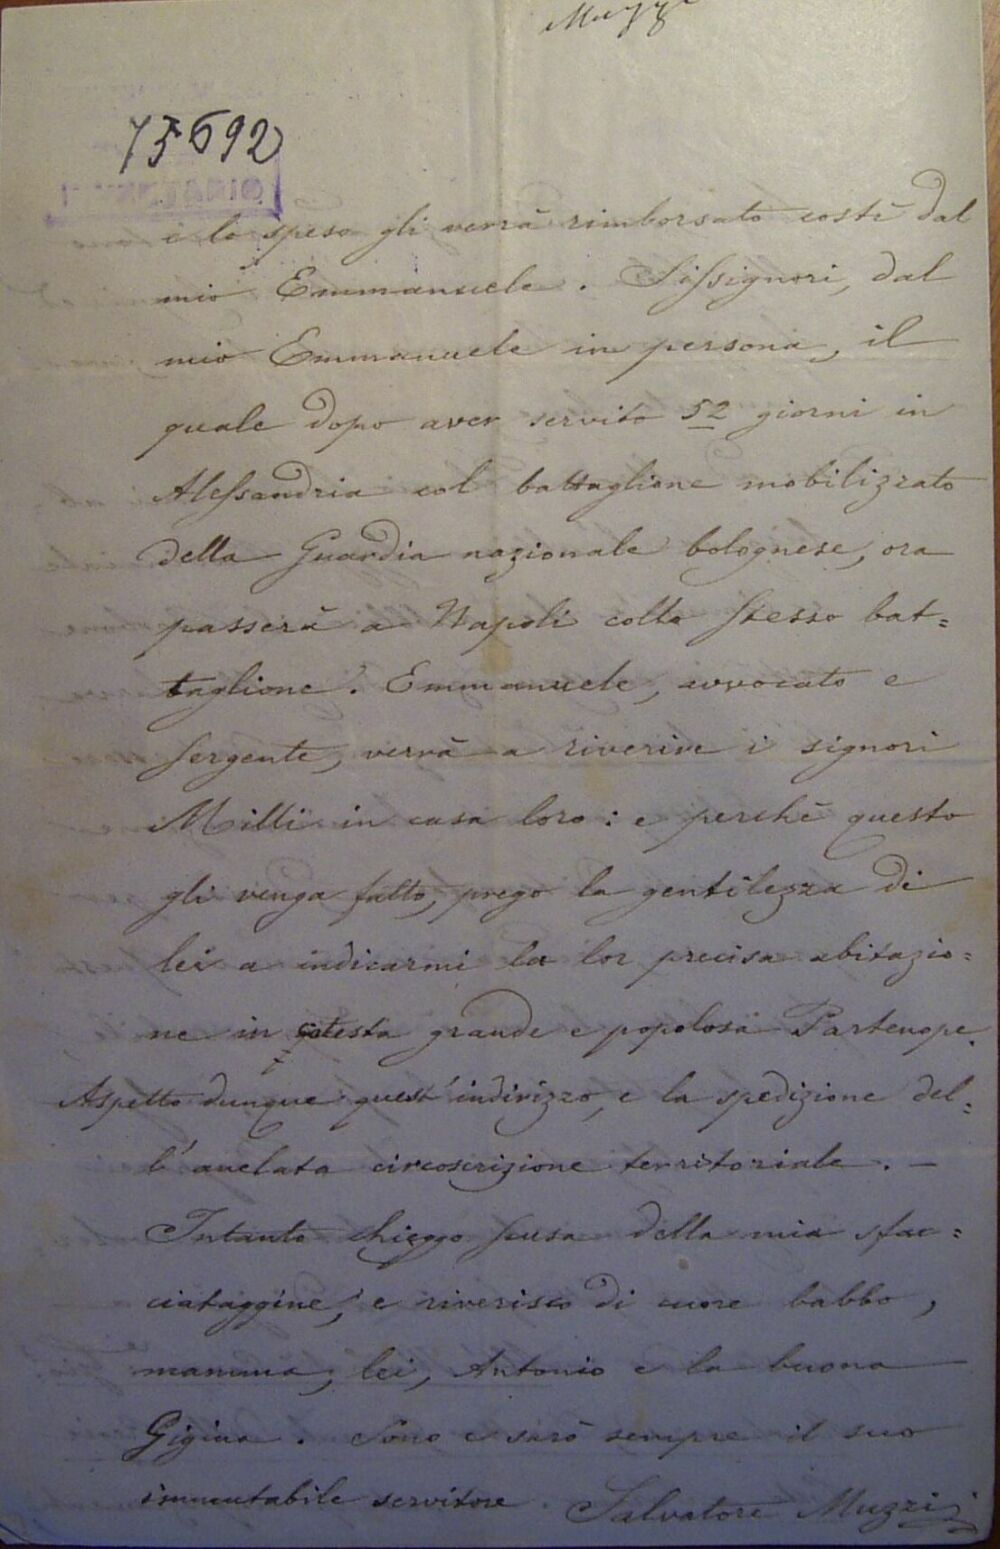 Muzzi
75692
e lo speso gli verrà rimborsato costì dal
mio Emmanuele. Sissignori, dal
mio Emmanuele in persona, il
quale dopo aver servito 52 giorni in
Alessandria col battaglione mobilizzato
della Guardia nazionale bolognese, ora
passerà a Napoli collo stesso bat=
taglione. Emmanuele, avvocato e
sergente, verrà a riverire i signori
Milli in casa loro: e perchè questo
gli venga fatto, prego la gentilezza di
lei a indicarmi la lor precisa abitazio=
ne in cotesta grande e popolosa Partenope.
Aspetto dunque quest'indirizzo, e la spedizione del=
l'anelata circoscrizione territoriale. —
Intanto chieggo scusa della mia sfac=
ciataggine, e riverisco di cuore babbo,
mamma, lei, Antonio e la buona
Gigina. Sono e sarò sempre il suo
immutabile servitore. Salvatore Muzzi